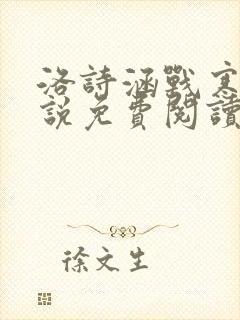 洛詩涵戰寒
說免費閱讀
徐文生